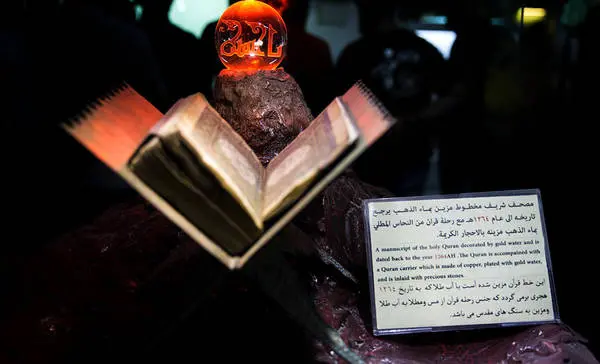 مصحف شريف مخطوط مزين بماء الذهب يرجع
تاريخه الى عام ١٢٦٤هـ مع رحلة قرآن من النحاس المطلي
بماء الذهب مزينه بالاحجار الكريمة.
A manuscript of the holy Quran decorated by gold water and is
dated back to the year 1264AH .The Quran is accompained with
a Quran carrier which is made of copper, plated with gold water,
and is inlaid with precious stones.
این خط قرآن مزین شده است با آب طلا که به تاریخ ١٢٦٤
هجری برمی گردد که جنس رحله قرآن از مس ومطلا به آب طلا
ومزین به سنگ های مقدس می باشد.